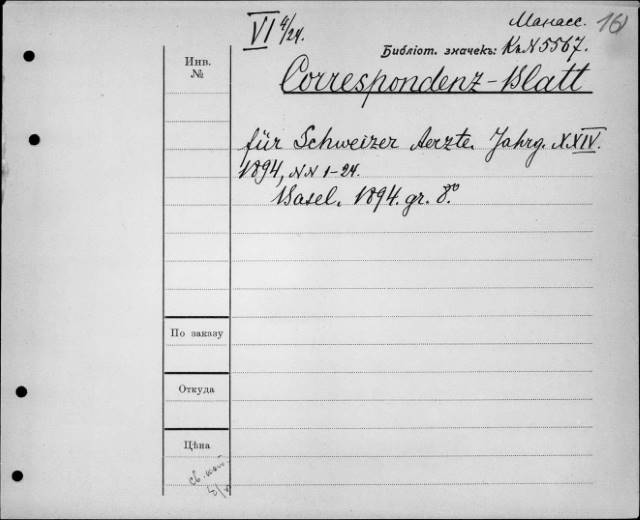 VI 4/24.
Манасс. 16
Инв.
№
Библіот. значекъ: Кк N 5567.
Correspondenz-Blatt
für Schweizer Aerzte. Jahrg. XXIV.
1894, NN 1-24.
Basel. 1894. gr. 8.º
По заказу
Откуда
Цѣна